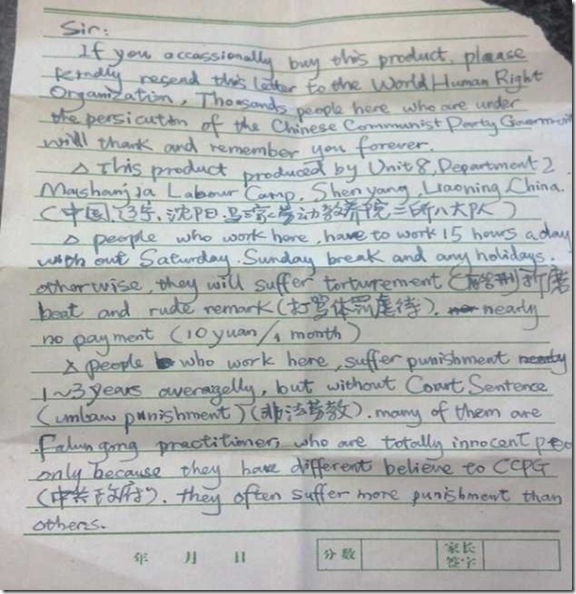 Sir:
If you occassionally buy this product, please
kindly resend this letter to the World Human Right
Organization, Thousands people here who are under
the persicution of the Chinese Communist Party Goverment
will thank and remember you forever.
△ This product produced by Unit 8, Department 2
Mashanjia Labour Camp, Shen yang, Liaoning, China.
(中国, 辽宁, 沈阳, 马三家劳动教养院二所八大队)
△ people who work here, have to work 15 hours a day
with out Saturday, Sunday break and any holidays.
otherwise, they will suffer torturement (酷刑) 折磨
beat and rude remark (打骂体罚虐待). nearly
no payment (10 yuan/1 month)
△ people who work here, suffer punishment
1~3 years averagelly, but without Court Sentence
(unlaw punishment) (非法劳教). many of them are
Falun gong practitioner, who are totally innocent peo
only because they have different believe to CCPG
(中共政府). they often suffer more punishment than
others.
年 月 日 分数 家长签字